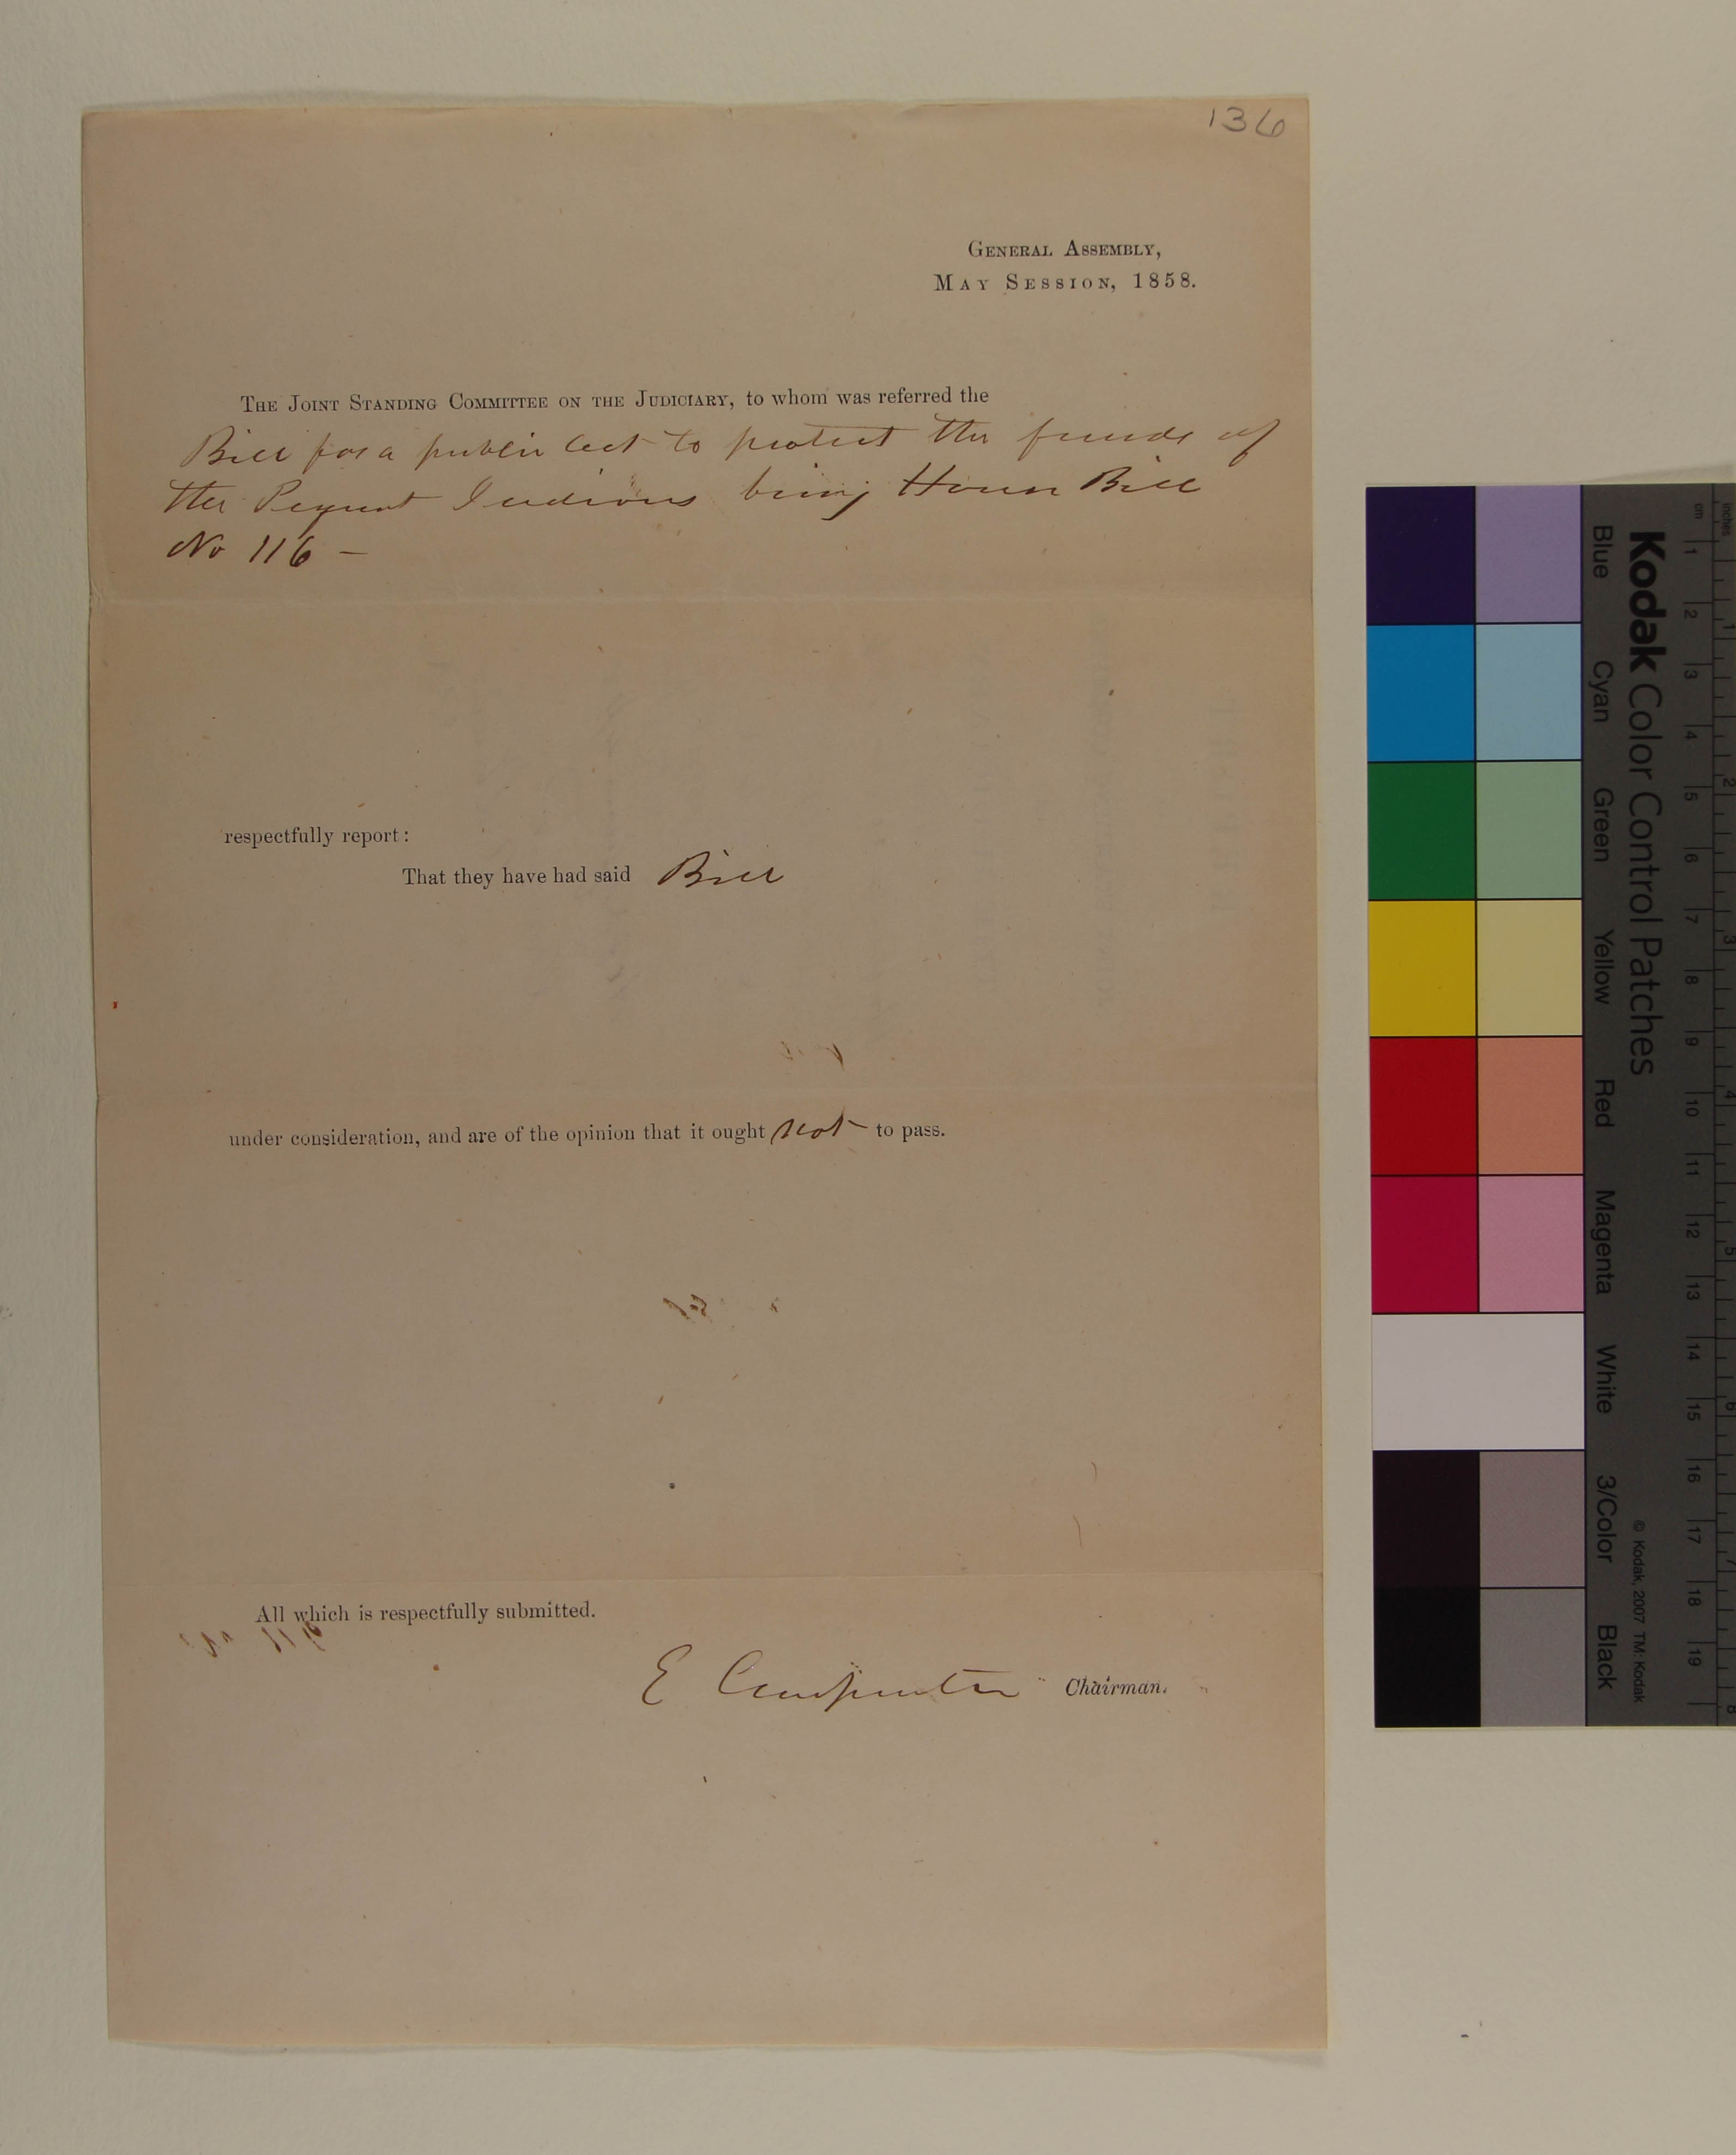 136
GENERAL ASSEMBLY,
MAY SESSION, 1858.
THE JOINT STANDING COMMITTEE ON THE JUDICIARY, to whom was referred the
Bill for a public act to protect the funds of
the Pequot Indians being House Bill
No 116 —
respectfully report:
That they have had said Bill
under consideration, and are of the opinion that it ought not to pass.
All which is respectfully submitted.
E Carpenter Chairman.
Kodak Color Control Patches
Blue Cyan Green Yellow Red Magenta White 3/Color Black
© Kodak, 2007 TM: Kodak
cm 1 2 3 4 5 6 7 8 9 10 11 12 13 14 15 16 17 18 19
inches 1 2 3 4 5 6 7 8